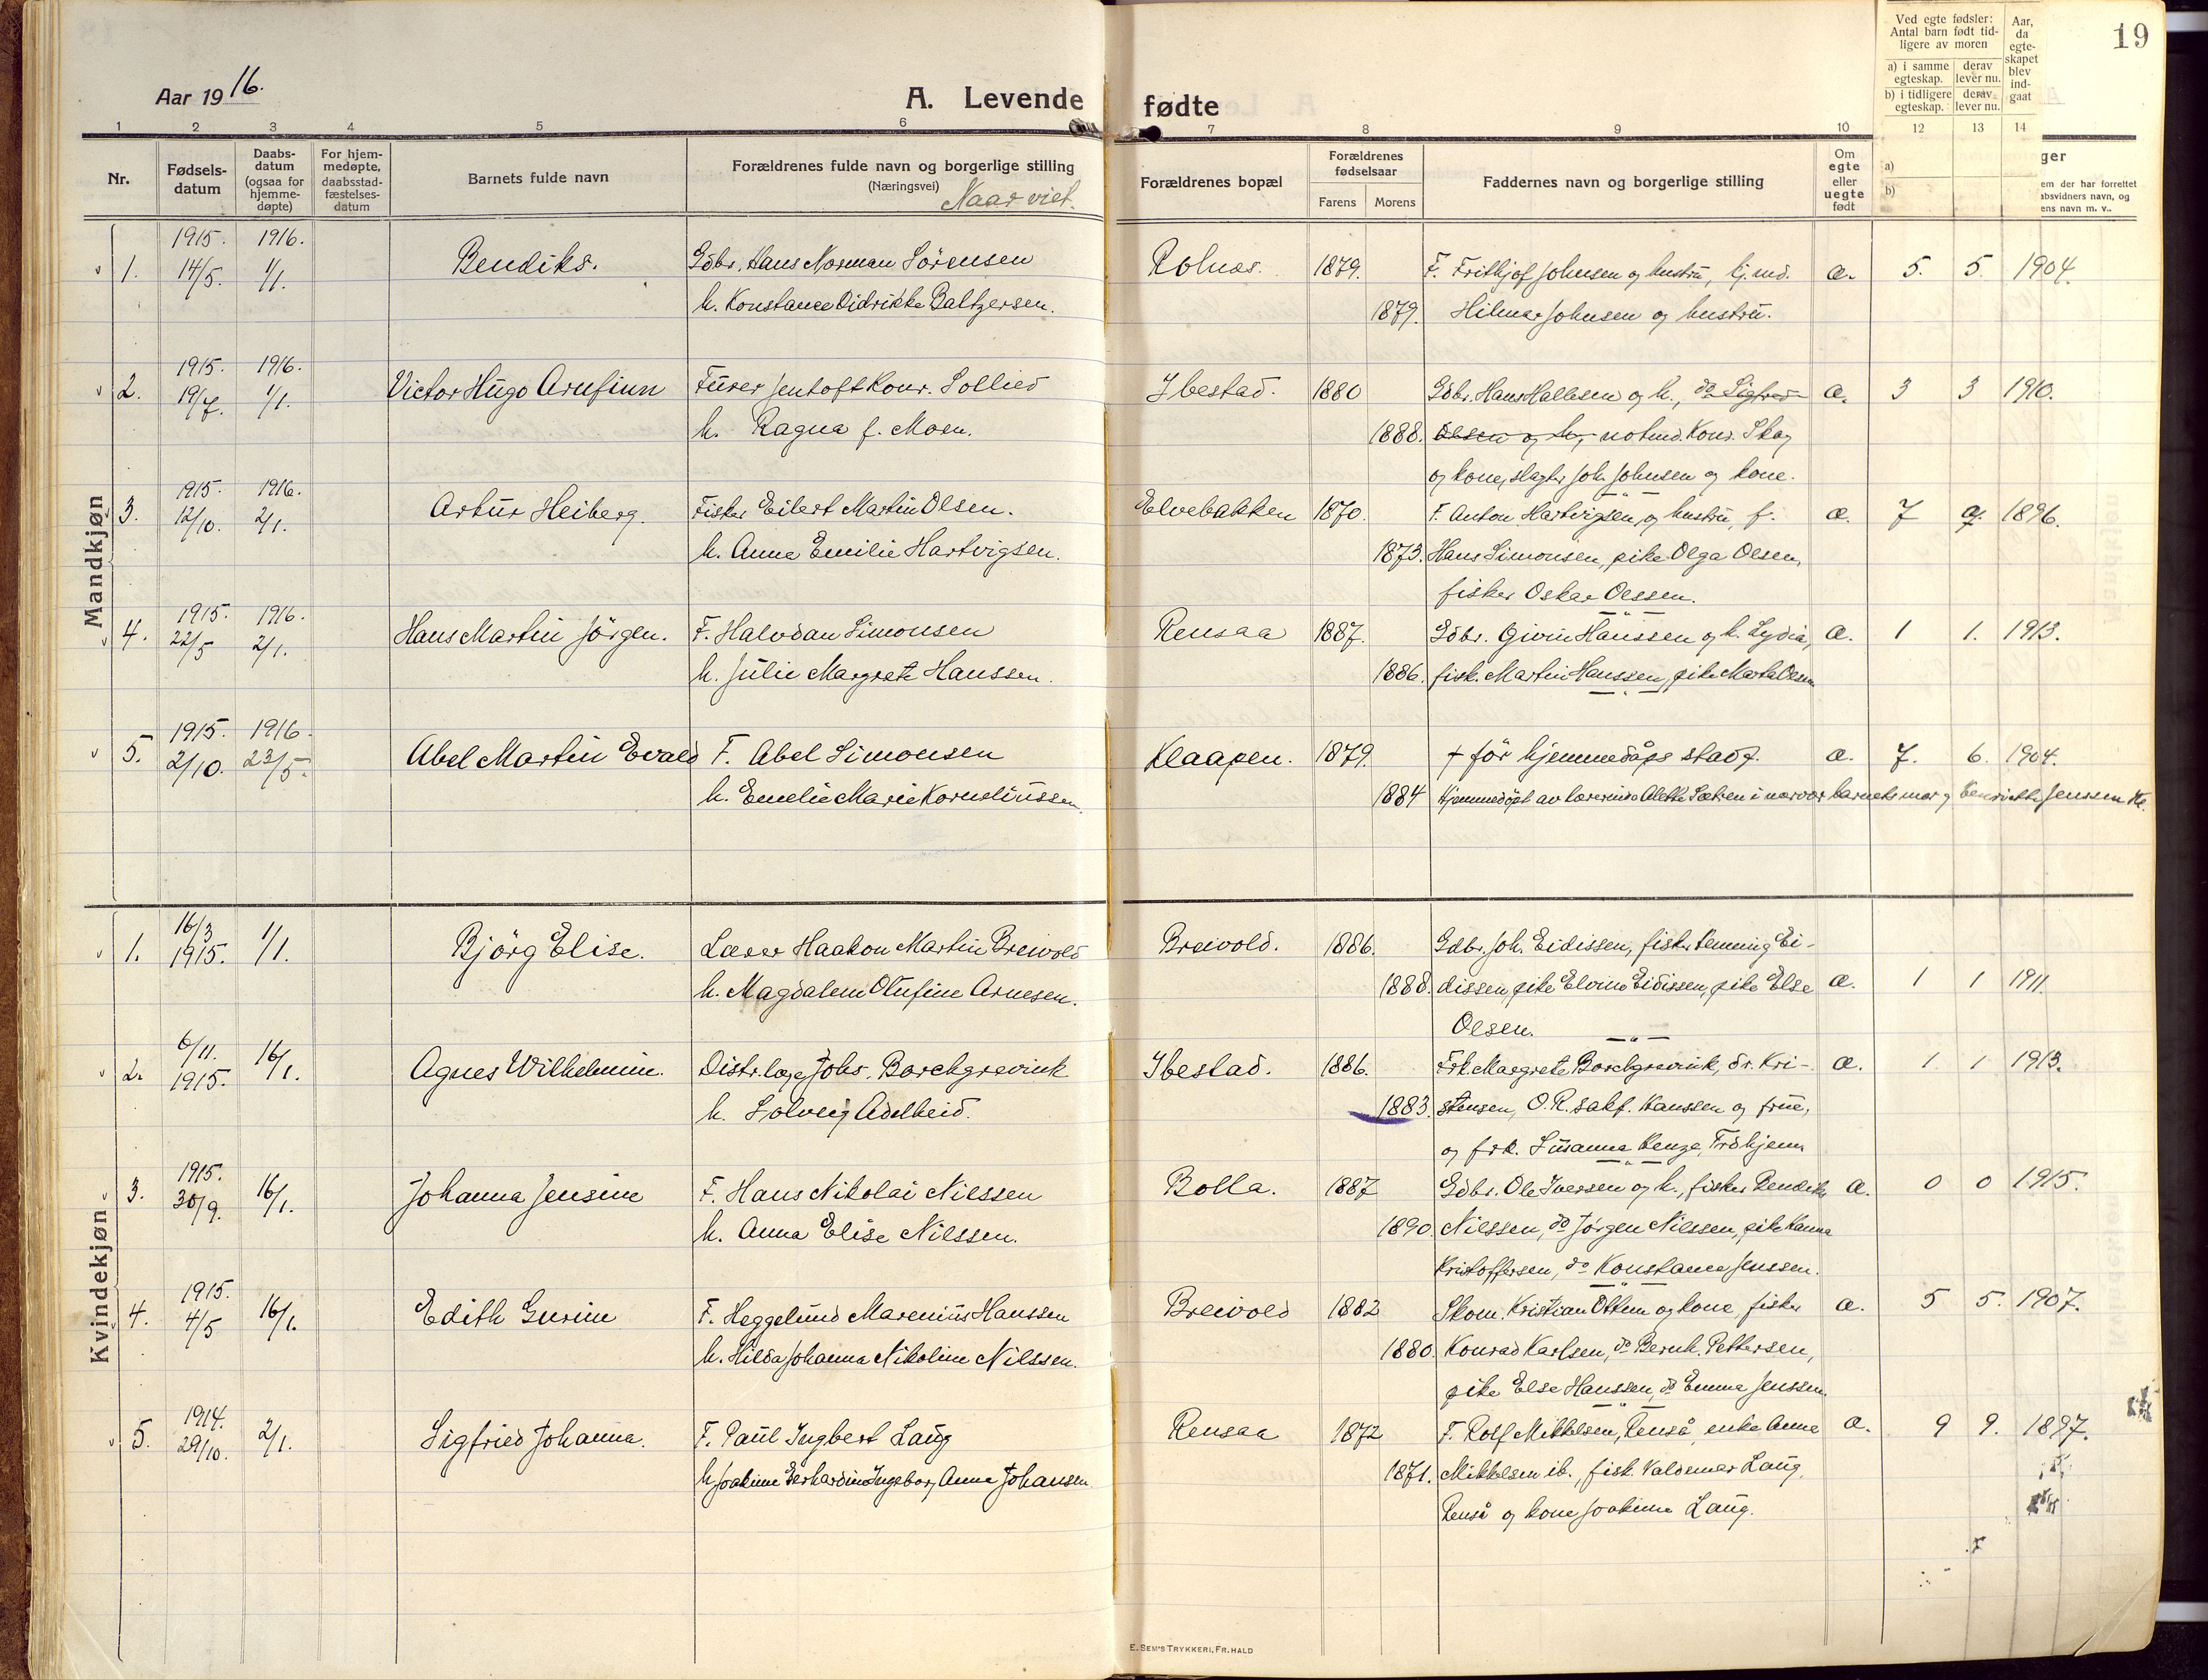 19
Aar 1916.
A. Levende fødte
Ved egte fødsler: Antal barn født tidligere av moren
a) i samme egteskap. derav lever nu.
b) i tidligere egteskap. derav lever nu.
Aar, da egteskapet blev indgaat
1 2 3 4 5 6 7 8 9 10 12 13 14
Nr.
Fødselsdatum
Daabsdatum (ogsaa for hjemmedøpte)
For hjemmedøpte, daabsstadfæstelsesdatum
Barnets fulde navn
Forældrenes fulde navn og borgerlige stilling
(Næringsvei)
Naar viet.
Forældrenes bopæl
Forældrenes fødselsaar
Farens Morens
Faddernes navn og borgerlige stilling
Om egte eller uegte født
a)
b)
ger
em der har forrettet
absvidners navn, og
ens navn m. v..
Mandkjøn
1915. 1916.
1. 14/5. 1/1. Bendiks. Gdbr. Hans Norman Sörensen Rolnes. 1879. F. Frithjof Johnsen og hustru, hj.md. æ. 5. 5. 1904.
h. Konstance Didrikke Baltzersen. 1879. Hilmar Johnsen og hustru.
1915. 1916.
2. 19/7. 1/1. Victor Hugo Arnfinn Furer Jentoft Konr. Sollied Ibestad. 1880 Gdbr. Hans Hallesen og h., do Sigfred æ. 3 3 1910.
h. Ragna f. Moen. 1888. Olsen og h, notmd. Konr. Skog
og kone, slagter Joh. Johnsen og kone.
1915. 1916.
3. 12/10. 2/1. Artur Heiberg. Fisker Eilert Martin Olsen. Elvebakken 1870. F. Anton Hartvigsen og hustru, f. æ. 7 7. 1896.
h. Anne Emilie Hartvigsen. 1873. Hans Simonsen, pike Olga Olsen,
fisker Oskar Olssen.
1915. 1916.
4. 22/5 2/1. Hans Martin Jörgen. F. Halvdan Simonsen Rensaa 1887. Gdbr. Givin Hanssen og h. Lydia, æ. 1 1. 1913.
h. Julie Margrete Hanssen. 1886. fisk. Martin Hanssen, pike Marta Olsen
1915. 1916.
5. 2/10. 23/5. Abel Martin Evald F. Abel Simonsen Klaapen. 1879. † för hjemmedåps stadf. æ. 7. 6. 1904.
h. Emelie Marie Kornelinssen. 1884 Hjemmedöpt av lærerinde Alette Sætren i nærvær barnets mor og Henriette Jenssen Kl.
Kvindekjøn
16/3
1. 1915. 1/1. Bjørg Elise. Lærer Haakon Martin Breivold Breivold. 1886. Gdbr. Joh. Eidissen, fisker Henning Ei-
h. Magdalene Olufine Arnesen. 1888. dissen, pike Elvine Eidissen, pike Else æ. 1 1 1911.
Olsen.
6/11.
2. 1915. 16/1. Agnes Wilhelmine. Distr.læge Johs. Borchgrevink Ibestad. 1886. Frk. Margrete Borchgrevink, dr. Kri- æ. 1 1 1913.
h. Solveig Adelheid. 1883. stensen, O.R.sakf. Hanssen og frue,
og frk. Susanna Henze, Trdhjem
1915.
3. 30/9. 16/1. Johanna Jensine F. Hans Nikolai Nilssen Bolla. 1887 Gdbr. Ole Iversen og h., fisker Bendiks æ. 0 0 1915.
h. Anna Elise Nilssen. 1890. Nilssen, do Jörgen Nilssen, pike Hanna
Kristoffersen, do Konstance Jenssen.
1915.
4. 4/5 16/1. Edith Gurine F. Heggelund Marenius Hanssen Breivold 1882 Skom. Kristian Ottem og kone, fisker æ. 5 5. 1907.
h. Hilda Johanna Nikoline Nilssen. 1880. Konrad Karlsen, do Bernh. Pettersen,
pike Else Hanssen, do Emma Jenssen.
1914.
5. 29/10. 2/1. Sigfried Johanna. F. Paul Ingbert Laug Rensaa 1872 F. Rolf Mikkelsen, Renså, enke Anna æ. 9 9. 1897.
h. Joakime Gerhardine Ingeborg Anna Johansen. 1871. Mikkelsen ib., fisk. Valdemar Laug,
Renså og kone Joakima Laug.
E. SEM'S TRYKKERI, FR.HALD